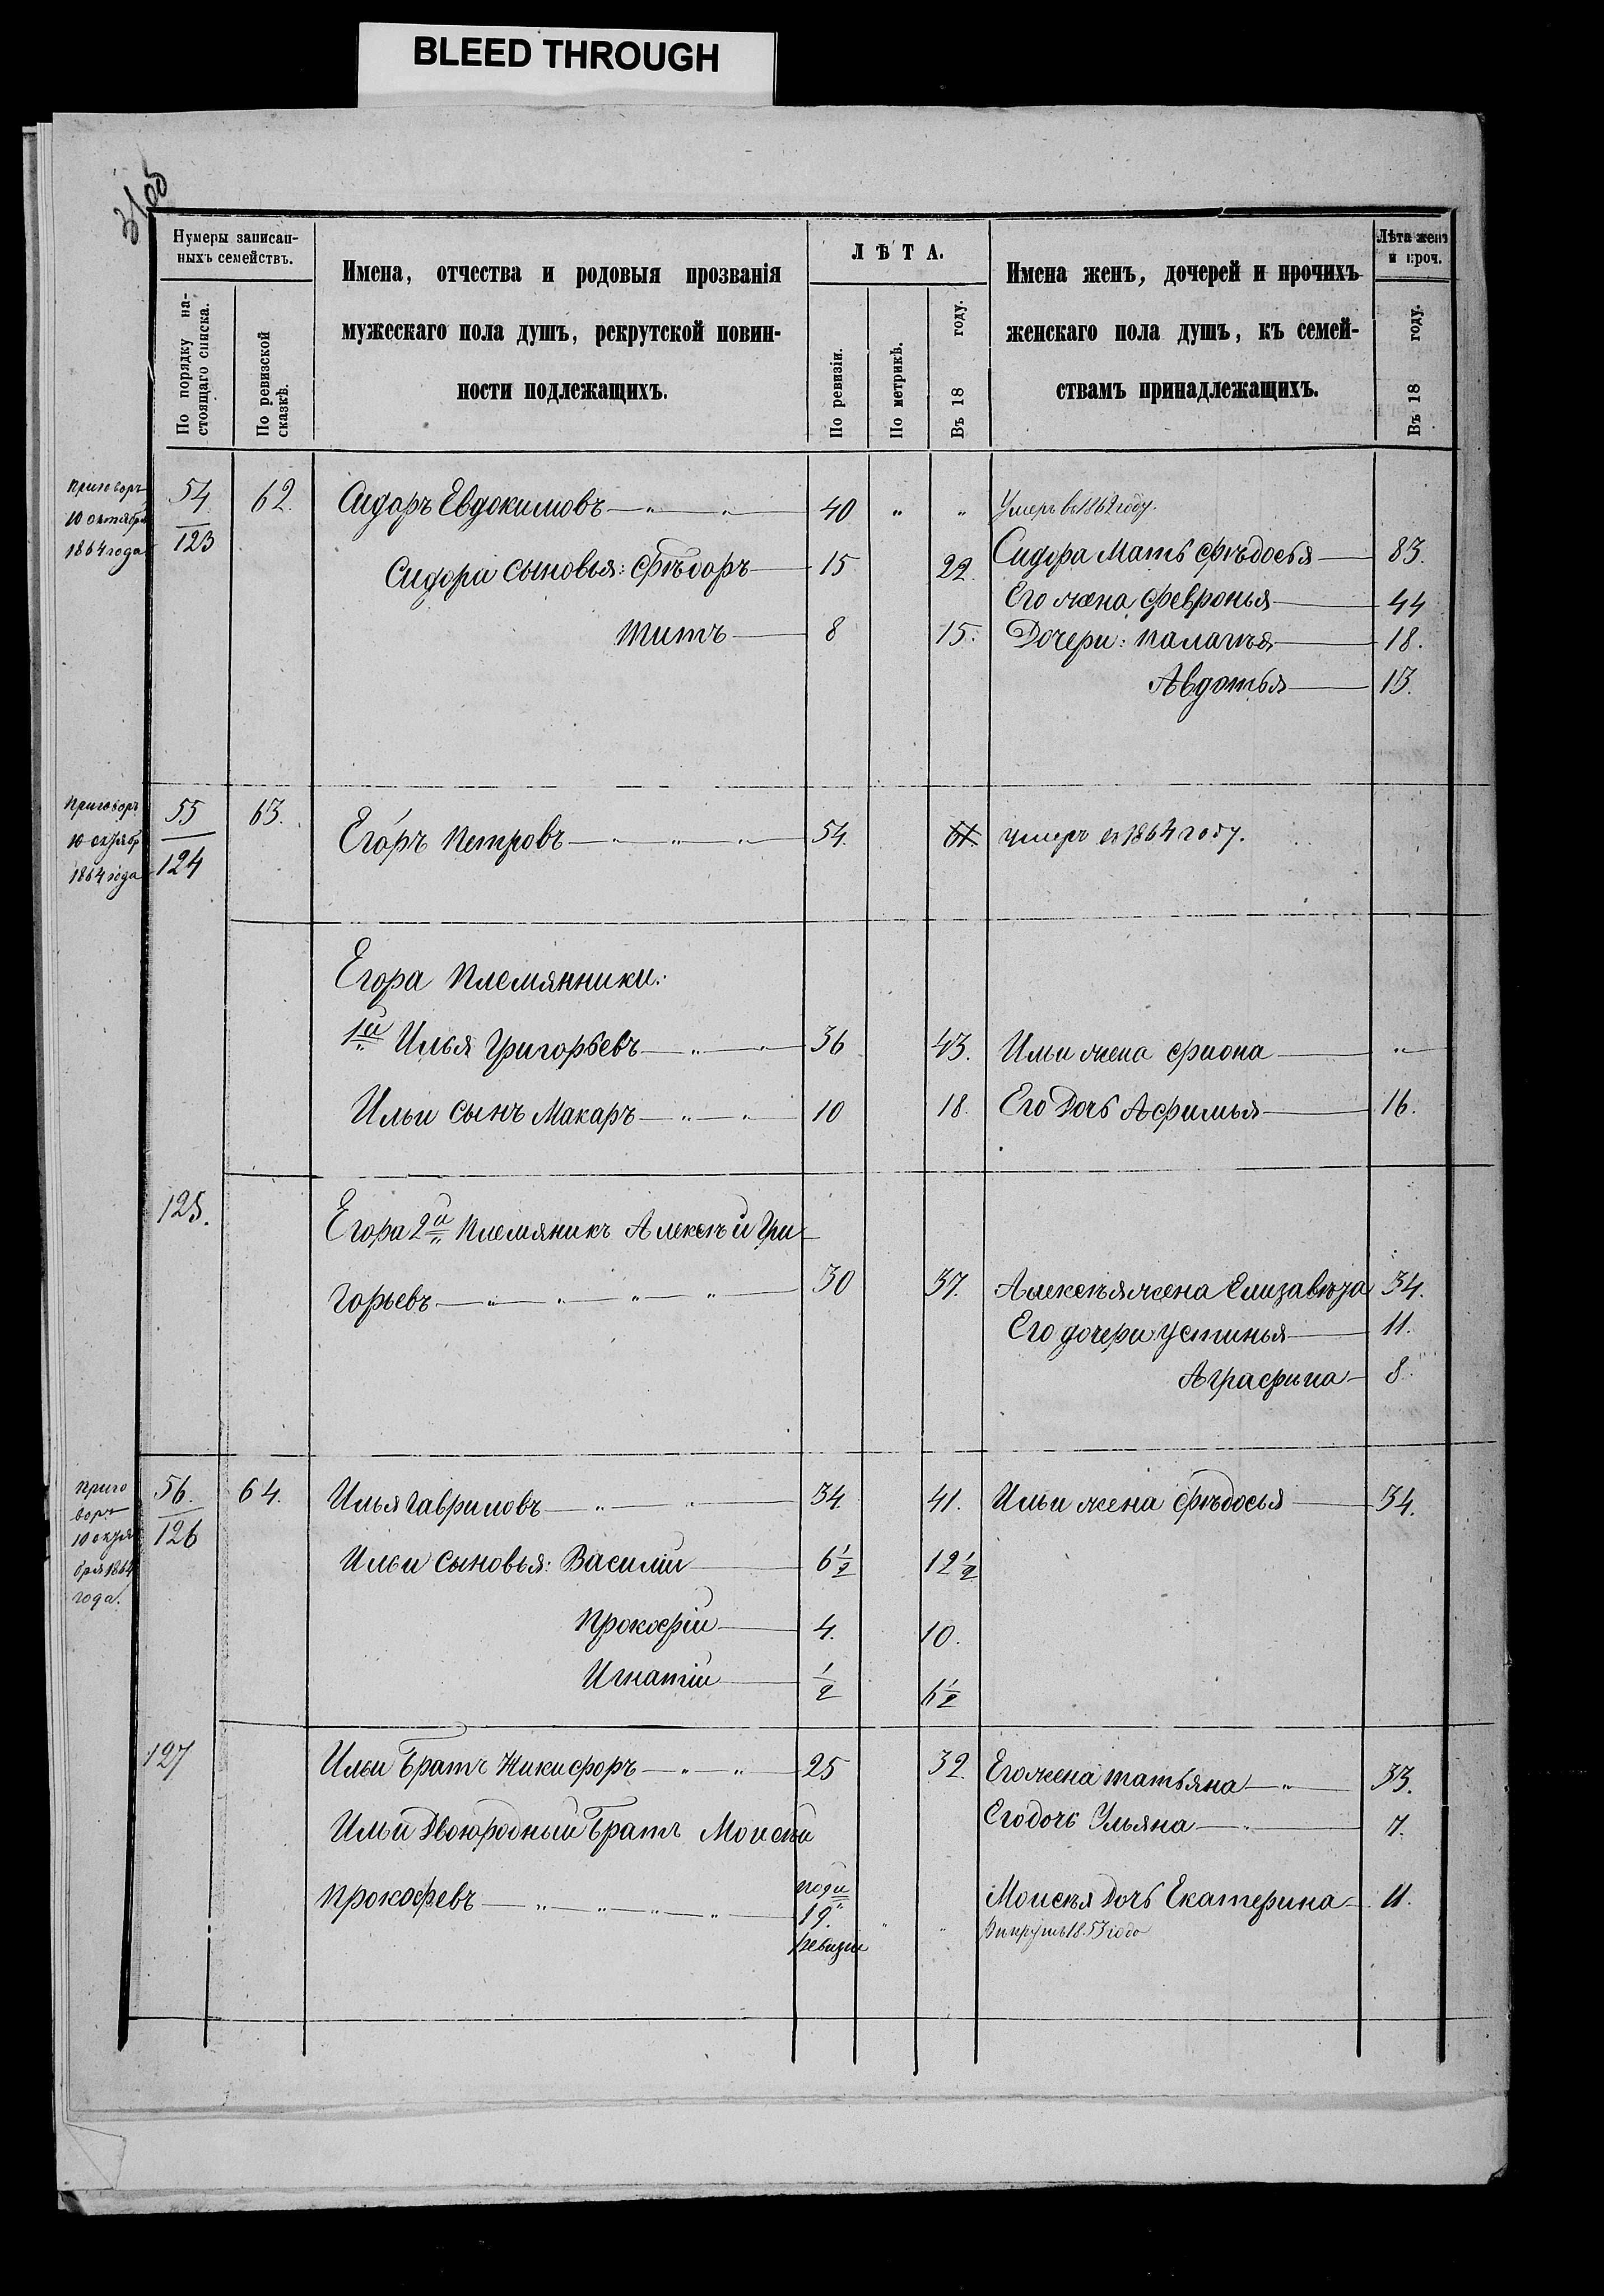 BLEED THROUGH
Нумеры записан-
ныхъ семействъ.
По порядку на-
стоящаго списка.
По ревизской
сказкѣ.
Имена, отчества и родовыя прозванія
мужескаго пола душъ, рекрутской повин-
ности подлежащихъ.
ЛѢТА.
По ревизіи.
По метрикѣ.
Въ 18 году.
Имена женъ, дочерей и прочихъ
женскаго пола душъ, къ семей-
ствамъ принадлежащихъ.
Лѣта женъ
и проч.
Въ 18 году.
Приговоръ 54 62. Сидоръ Евдокимовъ — " — " 40 " " Умеръ въ 1862 году.
10 октября
1864 года 123
Сидора сыновья: Ѳѣдоръ 15 22. Сидора Мать Ѳѣдосья 83.
Его жена Февронья 44
Титъ 8 15. Дочери: Палагѣя 18.
Авдотья 13.
Приговоръ 55 63. Егоръ Петровъ — " — " — " 54. 61. умеръ въ 1864 году.
10 октяб
1864 года 124
Егора Племянники:
1й Илья Григорьевъ — " — " 36 43. Ильи жена Фиона "
Ильи сынъ Макаръ — " — " 10 18. Его Дочь Афимья 16.
125.
Егора 2й Племяникъ Алексѣй Гри
горьевъ — " — " — " — " 30 37. Алексѣя жена Елизавѣта 34.
Его дочери: Устинья 11.
Аграфина 8.
Приго 56. 64. Илья Гавриловъ — " — " 34. 41. Ильи жена Ѳѣдосья 34.
воръ
10 октя 126
бря 1864
года.
Ильи сыновья: Василій 6½ 12½
Прокофій 4. 10.
Игнатій ½ 6½
127 Ильи Братъ Никифоръ — " — " 25 32. Его жена Татьяна — " 33.
Его дочь Ульяна — " 7.
Ильи Двоюродный Братъ Моисѣй
Прокофевъ — " — " — " — " 19. " " Моисѣя Дочь Екатерина 11.
ревизіи